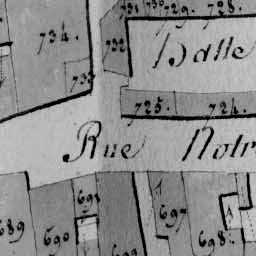 731 730 729. 728.
734. 732 Halle
733
725. 724.
Rue Notr
691 697
689 690 698.